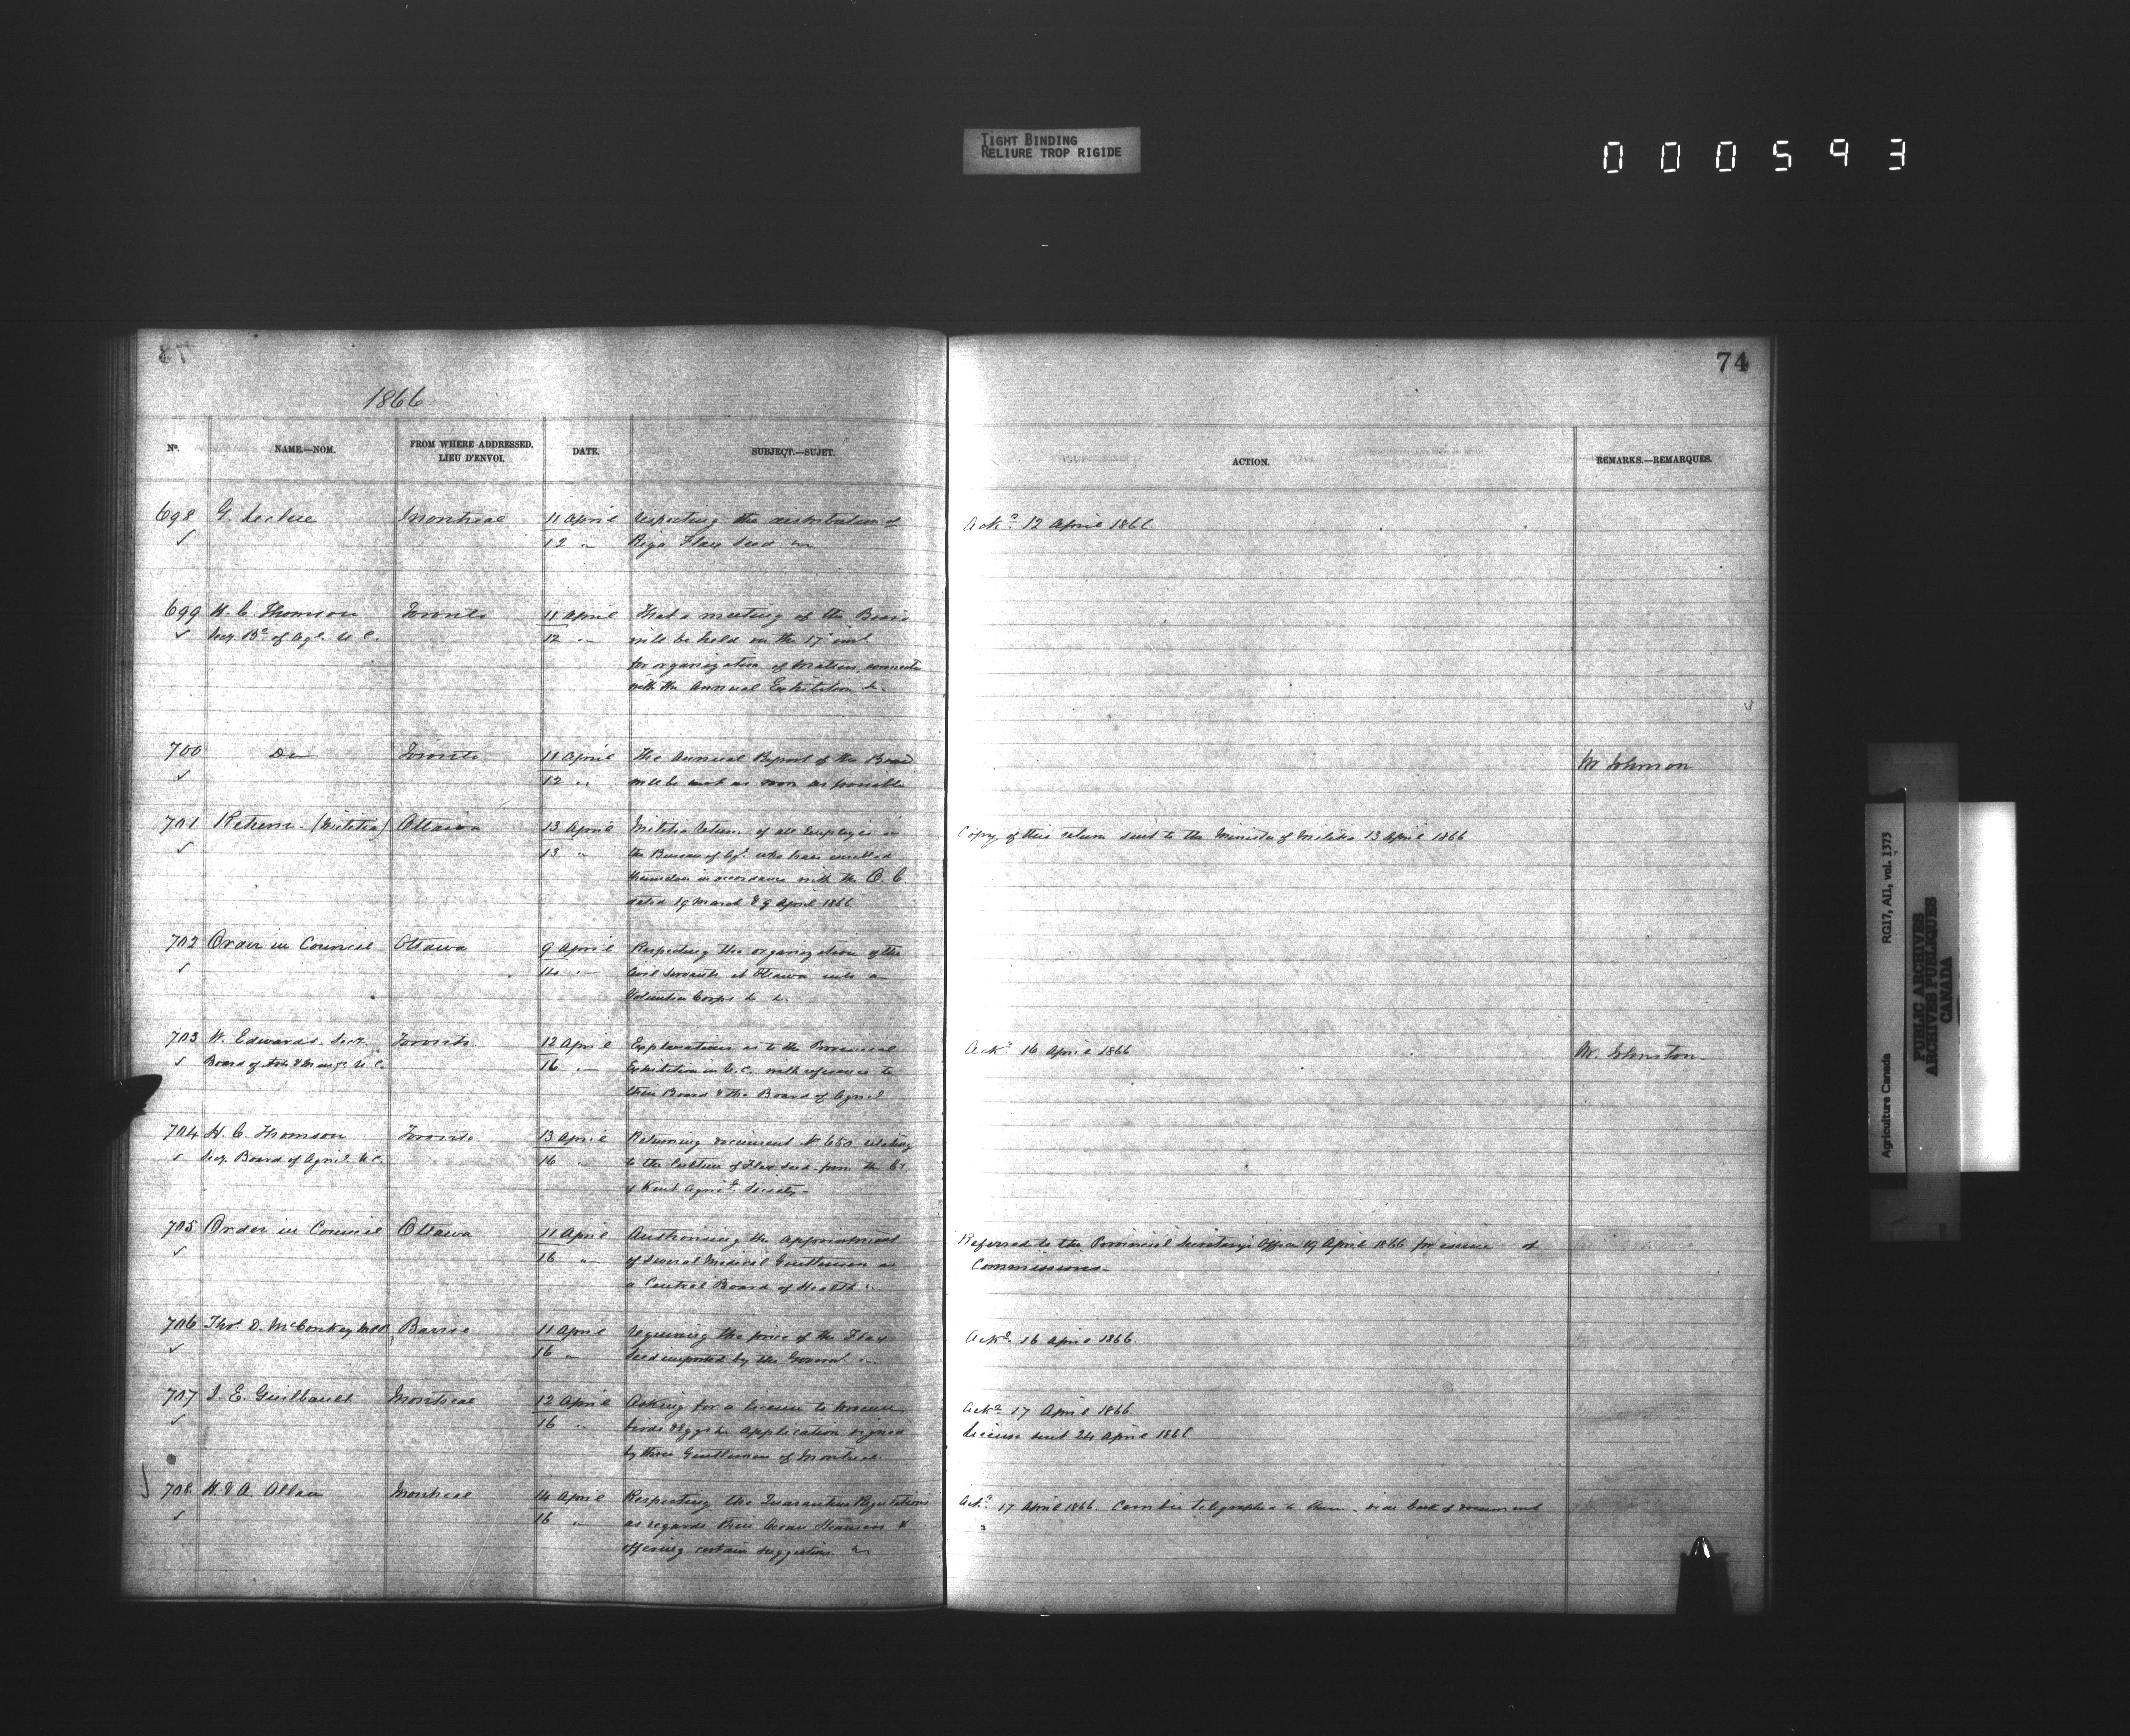 TIGHT BINDING
RELIURE TROP RIGIDE
000593
74
1866
No. NAME.—NOM. FROM WHERE ADDRESSED. LIEU D'ENVOI. DATE. SUBJECT.—SUJET. ACTION. REMARKS.—REMARQUES.
698 G. Leclere Montreal 11 April Respecting the distribution of Ackd 12 April 1866
12 " Riga Flax Seed &c
699 H. C. Thomson Toronto 11 April That a meeting of the Board
Secy. Bd. of Agl. U C. 12 " will be held on the 17 inst
for organization of matters connected
with the Annual Exhibition &c.
700 Do Toronto 11 April The Annual Report of the Board Mr Johnson
12 " will be sent as soon as possible
701 Return (Militia) Ottawa 13 April Militia return of all employés in Copy of this return sent to the Minister of Militia 13 April 1866
13 " the Bureau of Agl. who have enrolled
themselves in accordance with the O. C
dated 19 March & 9 April 1866
702 Order in Council Ottawa 9 April Respecting the organization of the
14 " Civil Servants at Ottawa into a
Volunteer Corps &c &c.
703 W. Edwards. Secy. Toronto 12 April Explanations as to the Provincial Ackd 16 April 1866 Mr. Johnston
Board of Arts & Manfs. U C. 16 " Exhibition in U.C. with reference to
their Board & the Board of Agricl
704 H. C. Thomson Toronto 13 April Returning document No 650 relating
Secy. Board of Agricl. U C. 16 " to the Culture of Flax Seed from the Cy.
of Kent Agricl. Society
705 Order in Council Ottawa 11 April Authorising the appointment Referred to the Provincial Secretary's Office 19 April 1866 for issue of
16 " of several Medical Gentlemen as Commissions
a Central Board of Health &c
706 Thos. D. McConkey MPP Barrie 11 April Requiring the price of the Flax Ackd 16 April 1866
16 " Seed imported by the Govermt. &c
707 J. E. Guilbault Montreal 12 April Asking for a license to procure Ackd 17 April 1866
16 " birds & Eggs &c Application signed License sent 24 April 1866
by three Gentlemen of Montreal
708 H. & A. Allan Montreal 14 April Respecting the Quarantine Regulations Ackd 17 April 1866. Can be telegraphed to them vide back of document
16 " as regards their Ocean Steamers &
offering certain suggestions &c
Agriculture Canada RG17, A11, vol. 1373
PUBLIC ARCHIVES
ARCHIVES PUBLIQUES
CANADA